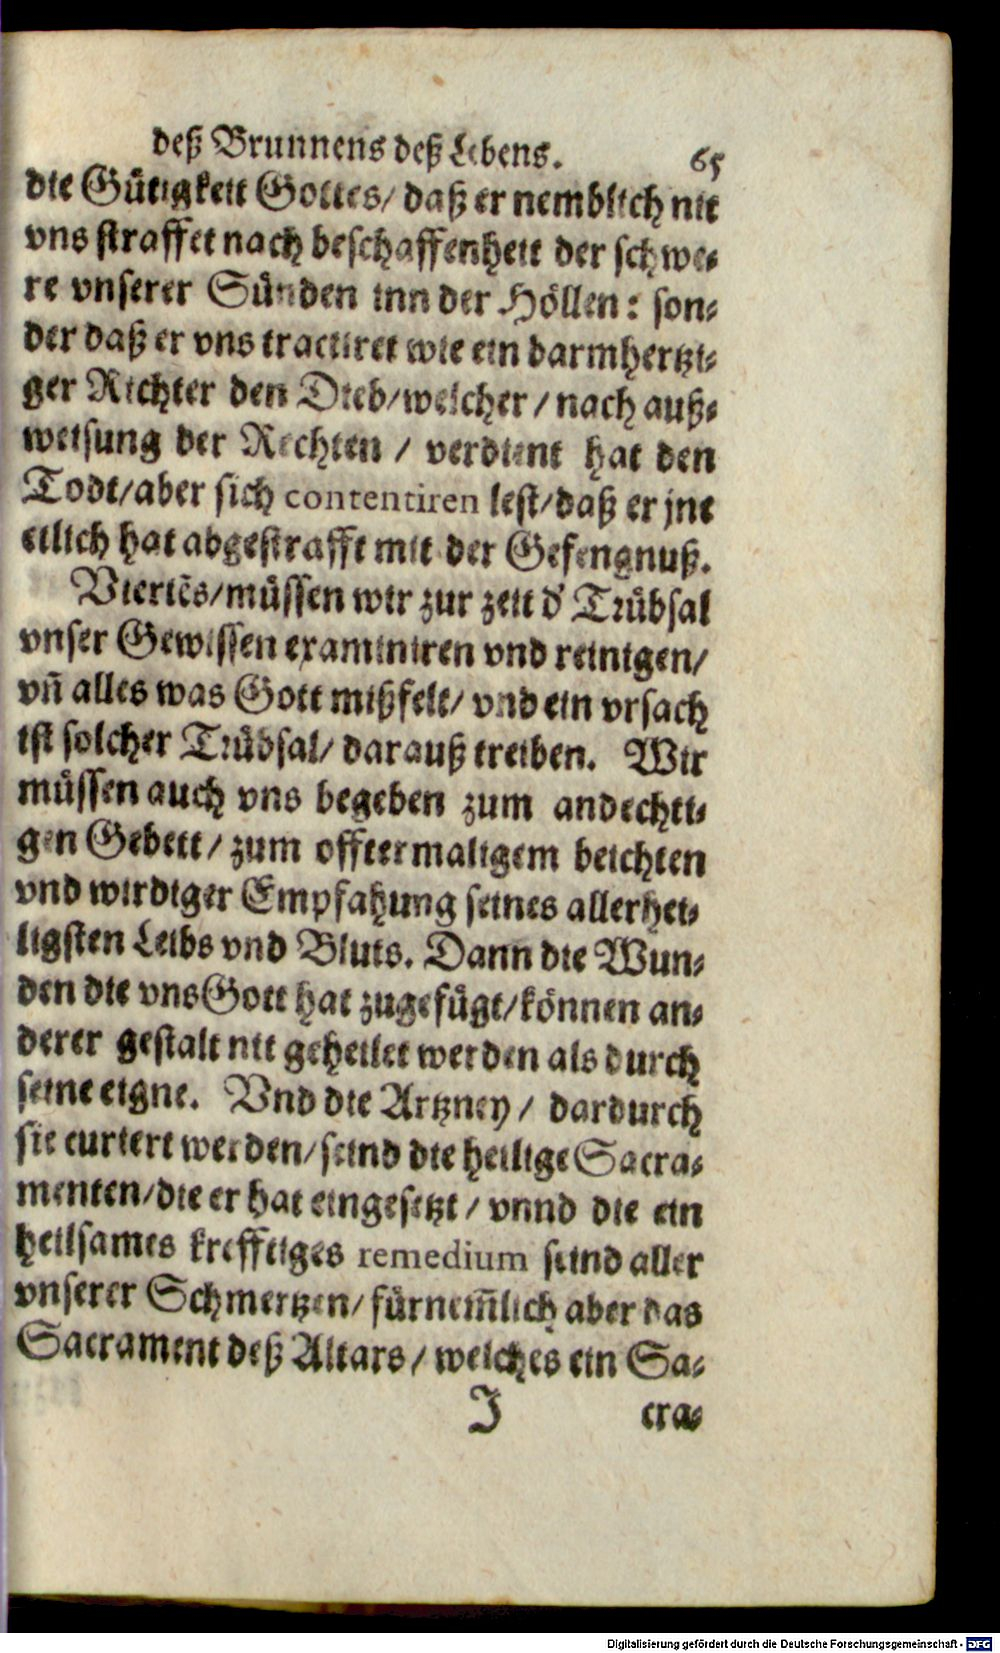 deß Brunnens deß Lebens. 65
die Gütigkeit Gottes/ daß er nemblich nit
vns straffet nach beschaffenheit der schwe-
re vnserer Sünden inn der Höllen: son-
der daß er vns tractiret wie ein barmhertzi-
ger Richter den Dieb/welcher / nach auß-
weisung der Rechten / verdient hat den
Todt/aber sich contentiren lest/daß er jne
etlich hat abgestrafft mit der Gefengnuß.
Viertēs/müssen wir zur zeit d' Trübsal
vnser Gewissen examiniren vnd reinigen/
vn̄ alles was Gott mißfelt/ vnd ein vrsach
ist solcher Trübsal/ darauß treiben. Wir
müssen auch vns begeben zum andechti-
gen Gebett/ zum offtermaligem beichten
vnd wirdiger Empfahung seines allerhei-
ligsten Leibs vnd Bluts. Dann die Wun-
den die vns Gott hat zugefügt/können an-
derer gestalt nit geheilet werden als durch
seine eigne. Vnd die Artzney / dardurch
sie curiert werden/seind die heilige Sacra-
menten/die er hat eingesetzt / vnnd die ein
heilsames krefftiges remedium seind aller
vnserer Schmertzen/ fürnem̄lich aber das
Sacrament deß Altars / welches ein Sa-
J cra-
Digitalisierung gefördert durch die Deutsche Forschungsgemeinschaft - DFG